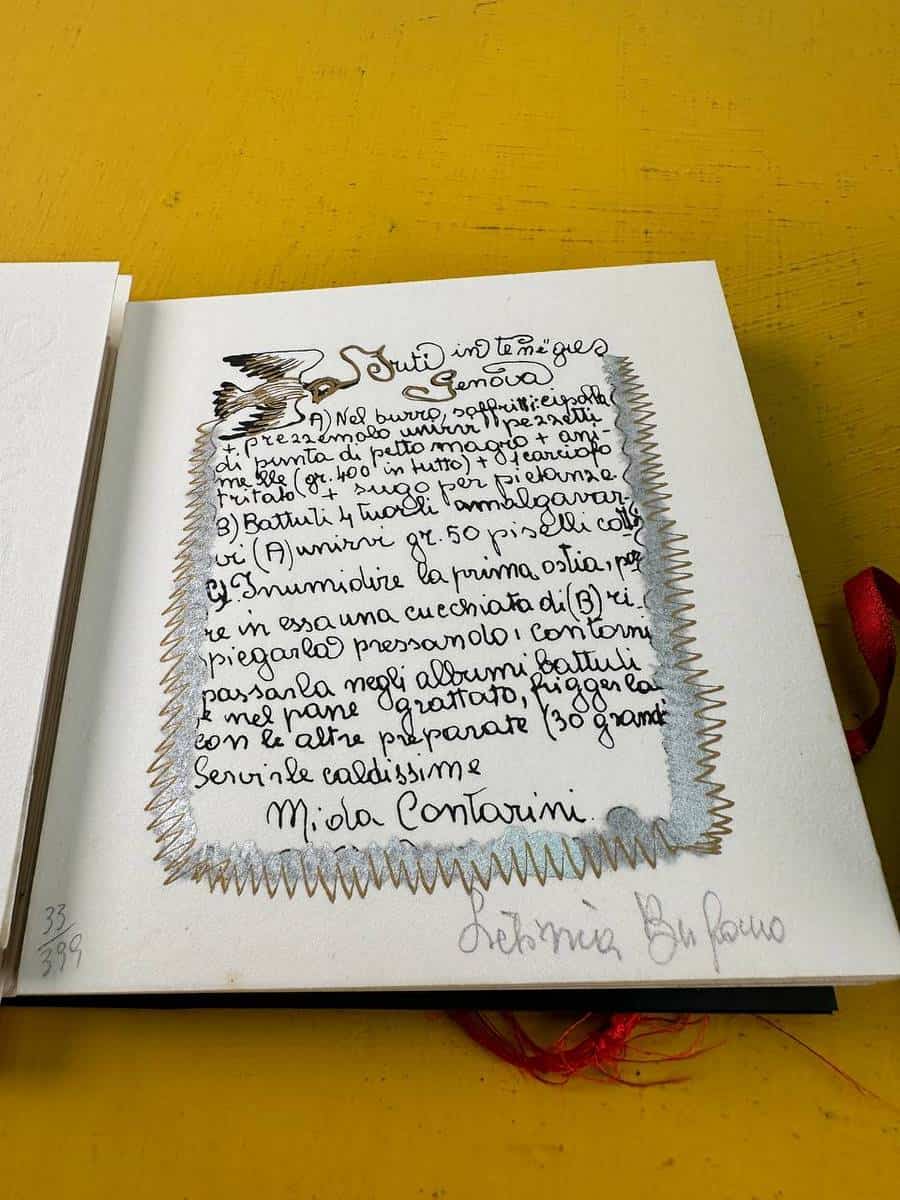 Fruti in te nëgies
Genova
A) Nel burro, soffritti: cipolla
+ prezzemolo unirvi pezzetti
di punta di petto magro + ani-
melle (gr. 400 in tutto) + 1 carciofo
tritato + sugo per pietanze.
B) Battuti 4 tuorli amalgavar-
vi (A) unirvi gr. 50 piselli cotti
C) Inumidire la prima ostia, por
re in essa una cucchiata di (B) ri-
piegarla pressando i contorni
passarla negli albumi battuti
e nel pane grattato, friggerla
con le altre preparate (30 grandi
Servirle caldissime
Contarini
33
399